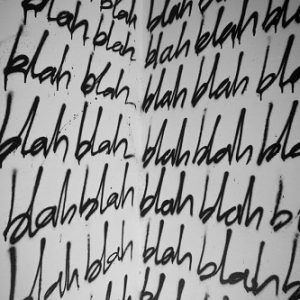 blah blah blah blah blah
blah blah blah blah
blah blah blah blah
blah blah blah blah
blah blah blah blah
blah blah blah blah